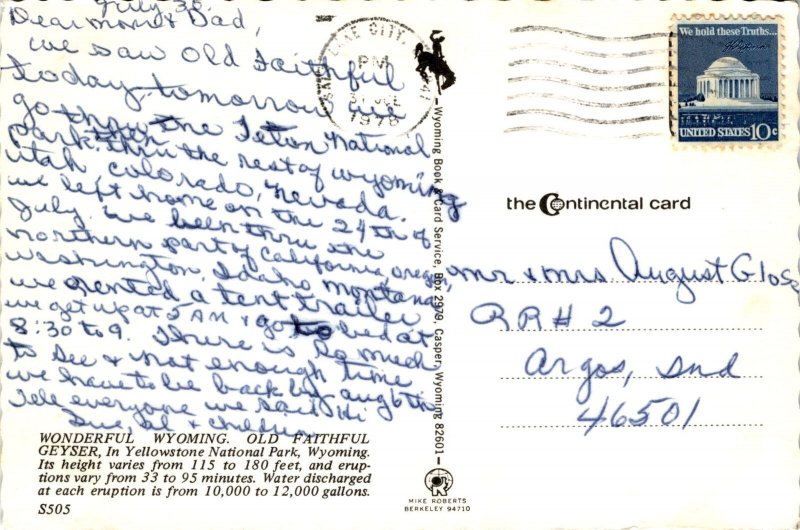 July 30,
Dear Mom & Dad,
We saw Old Faithful
today, tomorrow we
go thru the Teton National
park then thru the rest of Wyoming
Utah Colorado, Nevada.
We left home on the 24th of
July. We been thru the
northern part of California, Oregon,
Washington, Idaho, Montana
we rented a tent trailer
we get up at 5 AM & go to bed at
8:30 to 9. There is so much
to see & not enough time
we have to be back by Aug 6th
Tell everyone we said Hi
& children
WONDERFUL WYOMING. OLD FAITHFUL
GEYSER, In Yellowstone National Park, Wyoming.
Its height varies from 115 to 180 feet, and erup-
tions vary from 33 to 95 minutes. Water discharged
at each eruption is from 10,000 to 12,000 gallons.
S505
LAKE CITY,
PM
31 JUL
1976
Wyoming Book & Card Service, Box 2979, Casper, Wyoming 82601
MIKE ROBERTS
BERKELEY 94710
We hold these Truths...
UNITED STATES 10c
the Continental card
Mr & Mrs August Glose
RR # 2
Argos, Ind
46501